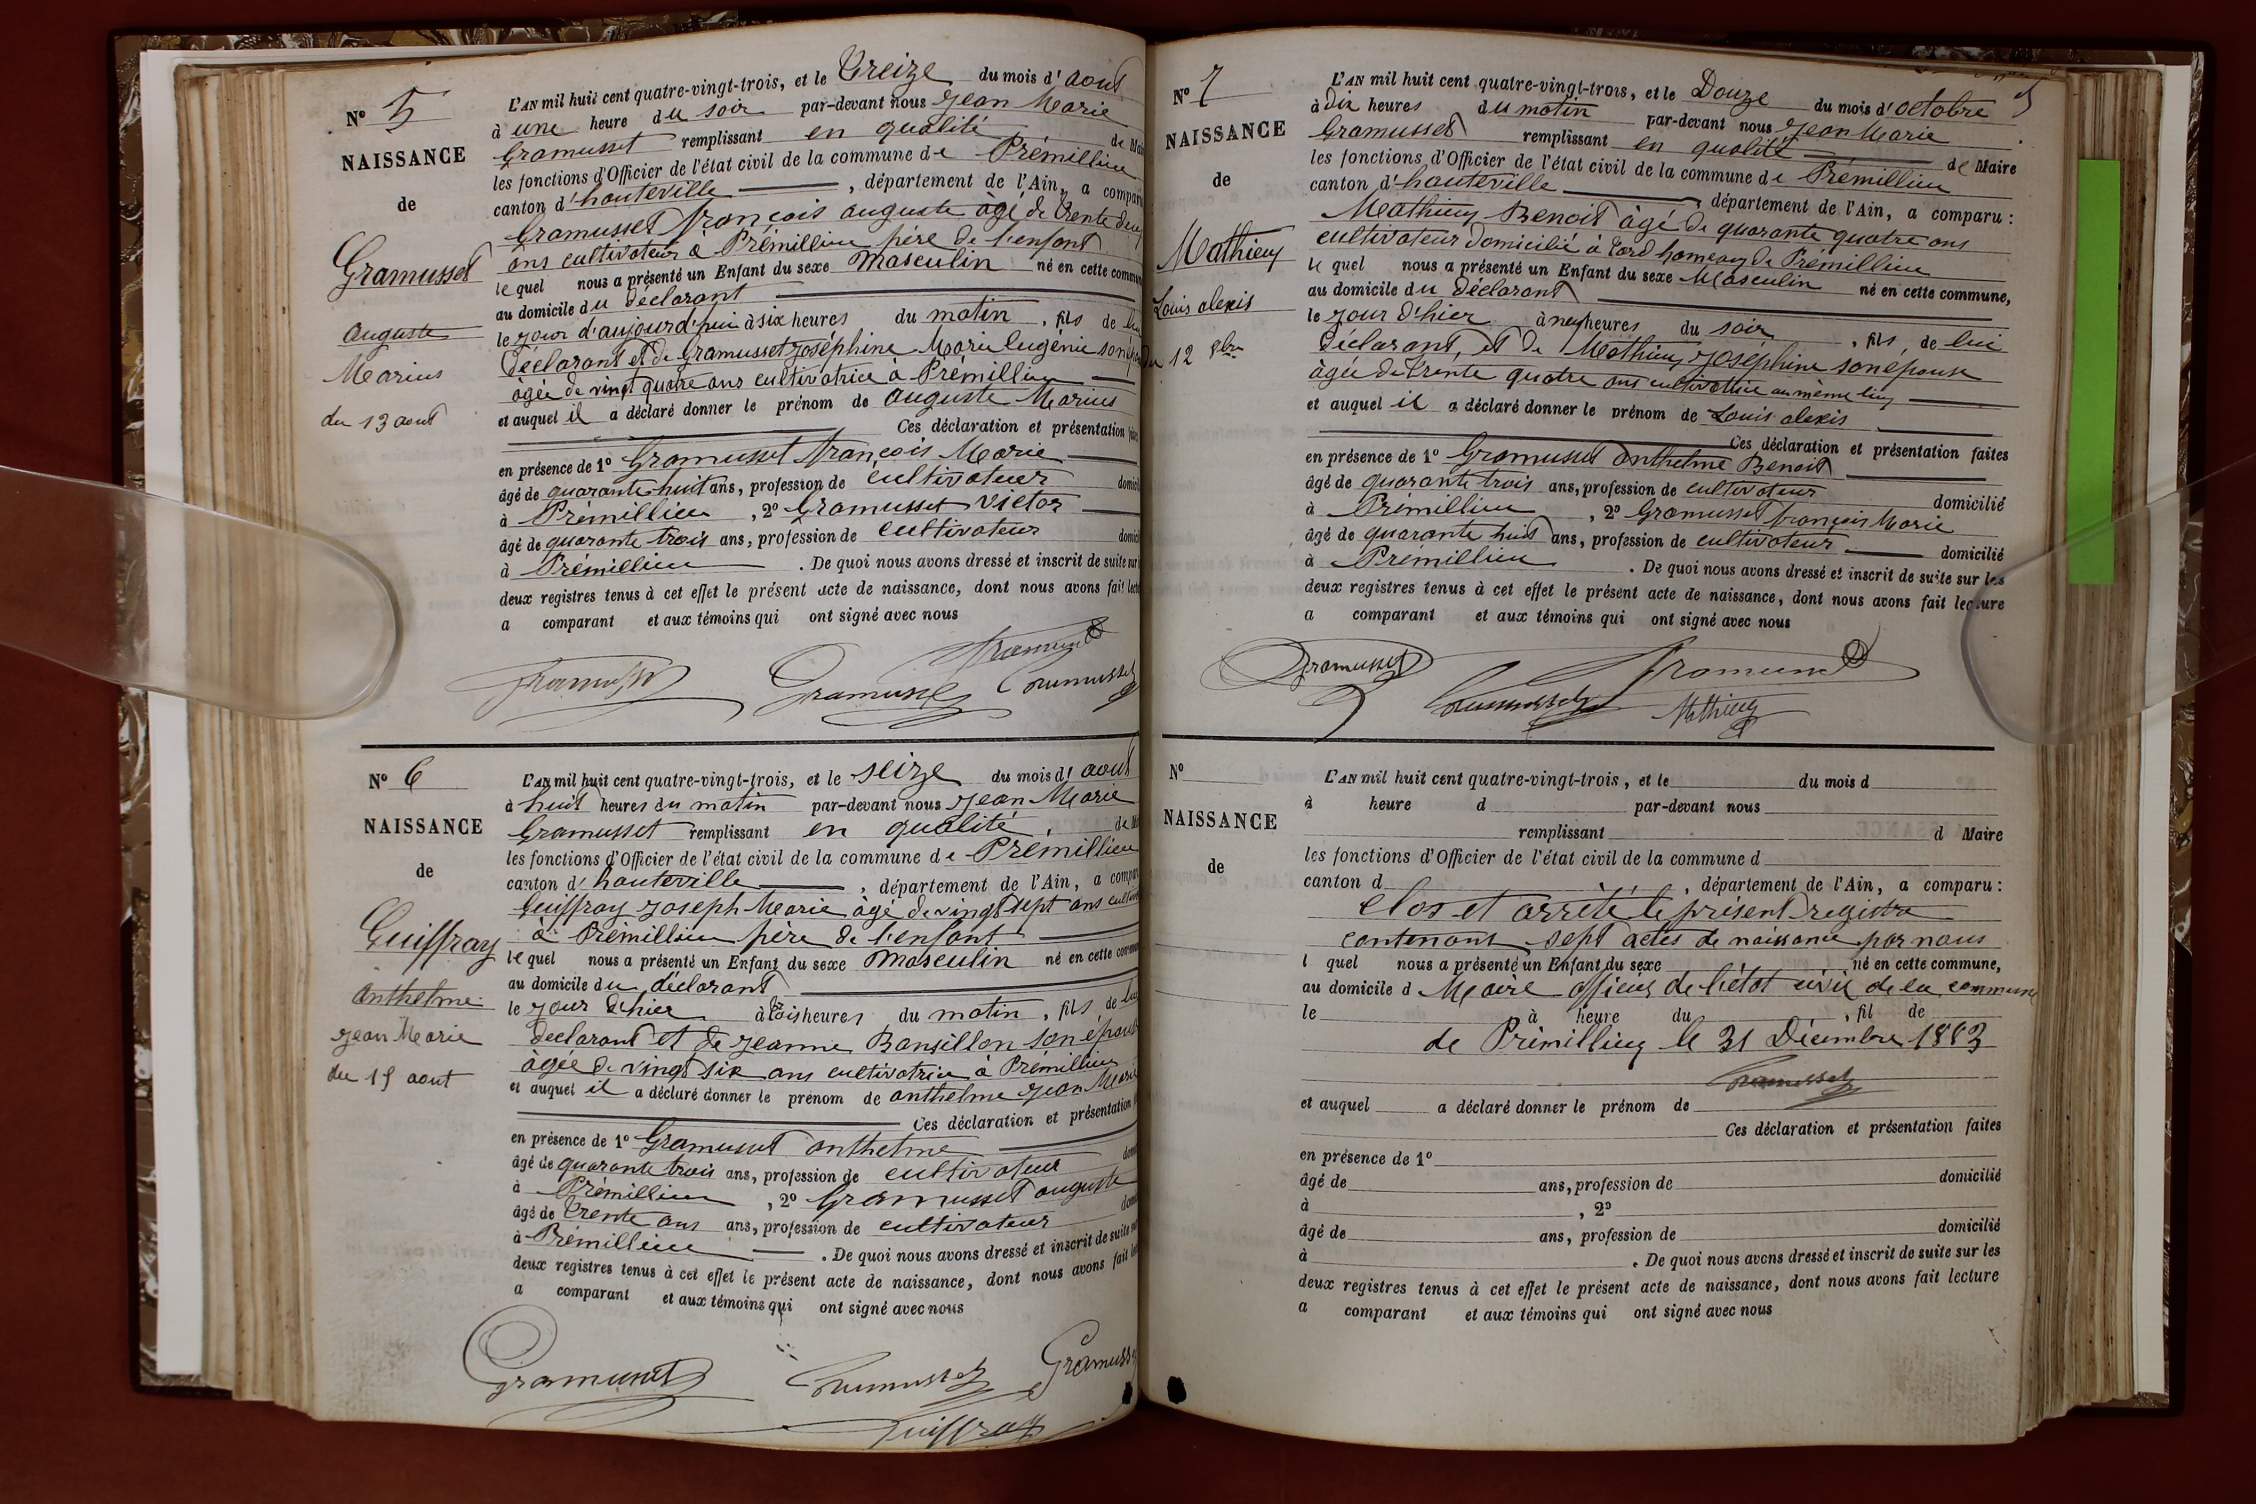 N° 5
NAISSANCE
de
Gramusset
auguste
Marius
du 13 aout
L'AN mil huit cent quatre-vingt-trois, et le Treize du mois d'aout
à une heure du soir par-devant nous Jean Marie
Gramusset remplissant en qualité de Mai
les fonctions d'Officier de l'état civil de la commune de Prémillieu
canton d'hauteville, département de l'Ain, a compar
Gramusset françois auguste âgé de trente deux
ans cultivateur à Prémillieu père de l'enfant
lequel nous a présenté un Enfant du sexe Masculin né en cette commun
au domicile du déclarant
le jour d'aujourd'hui à six heures du matin, fils de lui
déclarant et de Gramusset joséphine Marie Eugénie son épo
âgée de vingt quatre ans cultivatrice à Prémillieu
et auquel il a déclaré donner le prénom de auguste Marius
Ces déclaration et présentation faites
en présence de 1° Gramusset françois Marie
âgé de quarante huit ans, profession de cultivateur domicil
à Prémillieu, 2° Gramusset Victor
âgé de quarante trois ans, profession de cultivateur domici
à Prémillieu. De quoi nous avons dressé et inscrit de suite sur l
deux registres tenus à cet effet le présent acte de naissance, dont nous avons fait lectu
a comparant et aux témoins qui ont signé avec nous
Gramusset
Gramusset Gramusset Gramusset
N° 6
NAISSANCE
de
Guiffray
anthelme
jean Marie
du 15 aout
L'AN mil huit cent quatre-vingt-trois, et le seize du mois d'aout
à huit heures du matin par-devant nous Jean Marie
Gramusset remplissant en qualité de Ma
les fonctions d'Officier de l'état civil de la commune de Prémillieu
canton d'hauteville, département de l'Ain, a compar
Guiffray joseph Marie âgé de vingt sept ans cultiva
à Prémillieu père de l'enfant
lequel nous a présenté un Enfant du sexe Masculin né en cette commun
au domicile du déclarant
le jour d'hier à trois heures du matin, fils de lui
déclarant et de jeanne Bansillon son épouse
âgée de vingt six ans cultivatrice à Prémillieu
et auquel il a déclaré donner le prénom de anthelme jean Marie
Ces déclaration et présentation f
en présence de 1° Gramusset anthelme
âgé de quarante trois ans, profession de cultivateur domi
à Prémillieu, 2° Gramusset auguste
âgé de trente ans ans, profession de cultivateur domi
à Prémillieu. De quoi nous avons dressé et inscrit de suite sur
deux registres tenus à cet effet le présent acte de naissance, dont nous avons fait lec
a comparant et aux témoins qui ont signé avec nous
Gramusset Gramusset Gramusse
Guiffray
5
N° 7
NAISSANCE
de
Mathieu
Louis alexis
du 12 8bre
L'AN mil huit cent quatre-vingt-trois, et le Douze du mois d'octobre
à dix heures du matin par-devant nous Jean Marie
Gramusset remplissant en qualité de Maire
les fonctions d'Officier de l'état civil de la commune de Prémillieu
canton d'hauteville, département de l'Ain, a comparu :
Mathieu Benoit âgé de quarante quatre ans
cultivateur domicilié à Tard hameau de Prémillieu
le quel nous a présenté un Enfant du sexe Masculin né en cette commune,
au domicile du déclarant
le jour d'hier à neuf heures du soir, fils de lui
déclarant, et de Mathieu joséphine son épouse
âgée de trente quatre ans cultivatrice au même lieu
et auquel il a déclaré donner le prénom de Louis alexis
Ces déclaration et présentation faites
en présence de 1° Gramusset anthelme Benoit
âgé de quarante trois ans, profession de cultivateur domicilié
à Prémillieu, 2° Gramusset françois Marie
âgé de quarante huit ans, profession de cultivateur domicilié
à Prémillieu. De quoi nous avons dressé et inscrit de suite sur les
deux registres tenus à cet effet le présent acte de naissance, dont nous avons fait lecture
a comparant et aux témoins qui ont signé avec nous
Gramusset Gramusset
Gramusset Mathieu
N°
NAISSANCE
de
L'AN mil huit cent quatre-vingt-trois, et le du mois d
à heure d par-devant nous
remplissant d Maire
les fonctions d'Officier de l'état civil de la commune d
canton d, département de l'Ain, a comparu :
Clos et arrêté le présent registre
contenant sept actes de naissance par nous
l quel nous a présenté un Enfant du sexe né en cette commune,
au domicile d Maire officier de l'état civil de la commune
le à heure du, fil de
de Prémillieu le 31 Décembre 1883
Gramusset
et auquel a déclaré donner le prénom de
Ces déclaration et présentation faites
en présence de 1°
âgé de ans, profession de domicilié
à, 2°
âgé de ans, profession de domicilié
à. De quoi nous avons dressé et inscrit de suite sur les
deux registres tenus à cet effet le présent acte de naissance, dont nous avons fait lecture
a comparant et aux témoins qui ont signé avec nous